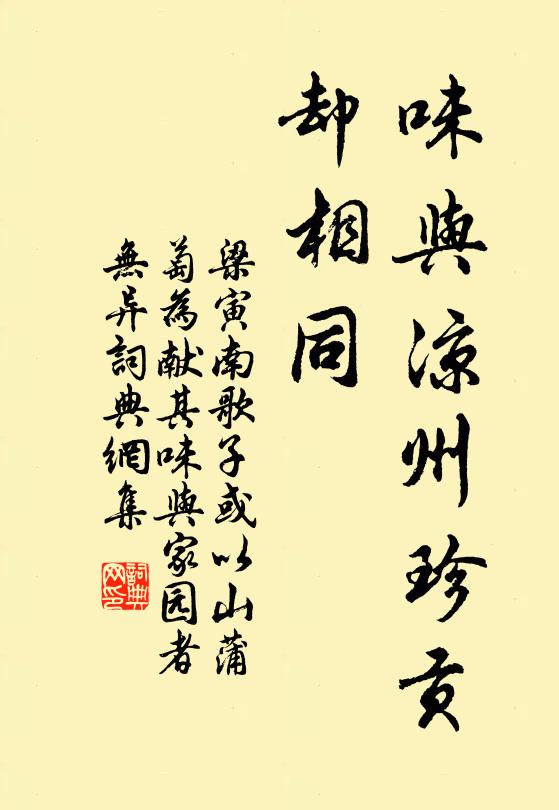 味與凉州珍贡
却相同
梁寅南歌子或以山蒲
萄為献其味與家园者
無异詞典網集
詞典
网印